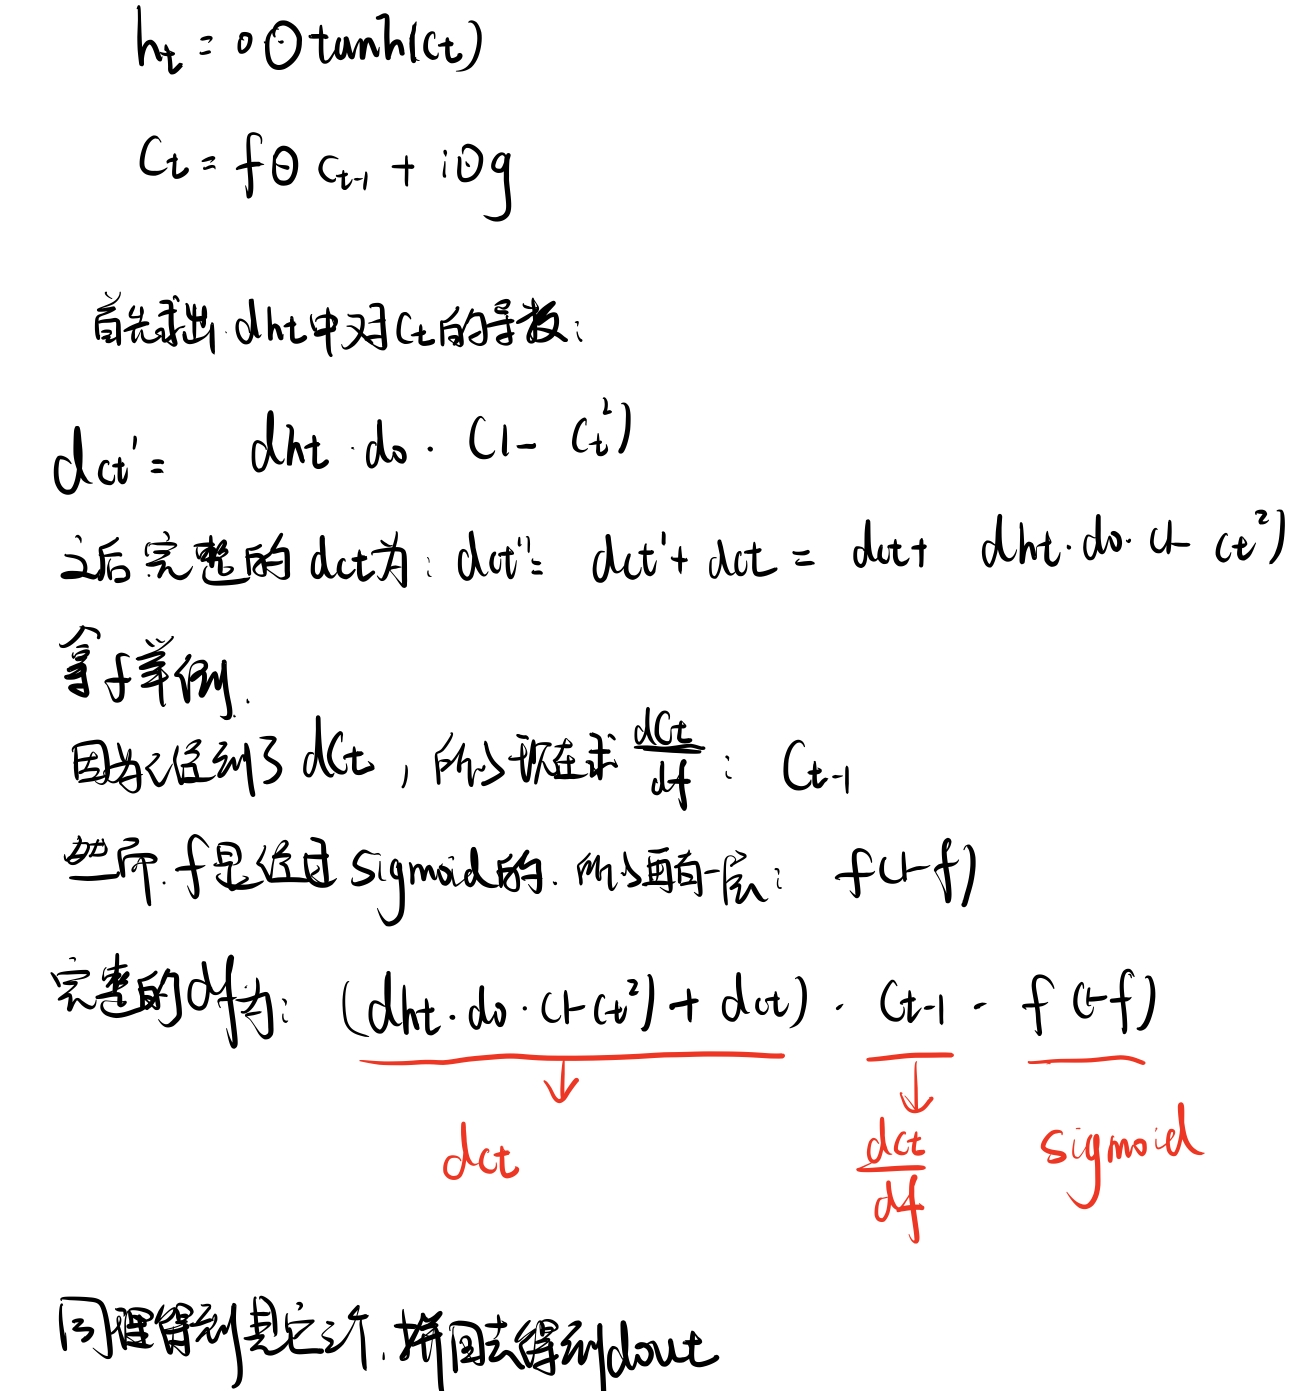 ht = o⊙tanh(ct)
Ct = f⊙ ct-1 + i⊙g
首先求出 dht中对Ct的导数:
dct' = dht · do · (1- Ct²)
之后完整的 dct为: dct'' = dct' + dct = dct + dht · do · (1- ct²)
拿f举例.
因为已经到了 dCt , 所以现在求 dCt/df : Ct-1
然而. f是经过 sigmoid的. 所以再有一层: f(1-f)
完整的df为: (dht · do · (1-Ct²) + dct) · Ct-1 · f(1-f)
dct dct/df sigmoid
同理得到其它三个. 拼回去得到dout